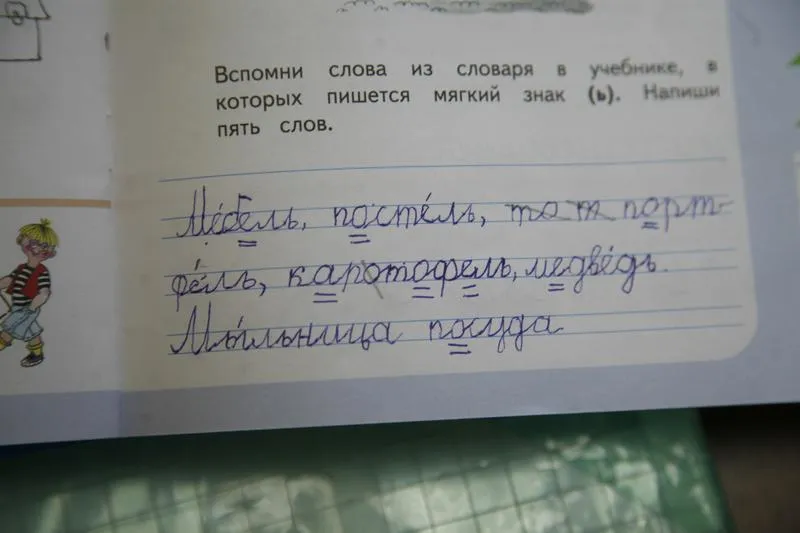 Вспомни слова из словаря в учебнике, в
которых пишется мягкий знак (ь). Напиши
пять слов.
Ме́бель, посте́ль, порт-
фе́ль, каротофель, медве́дь.
Мы́льница посуда